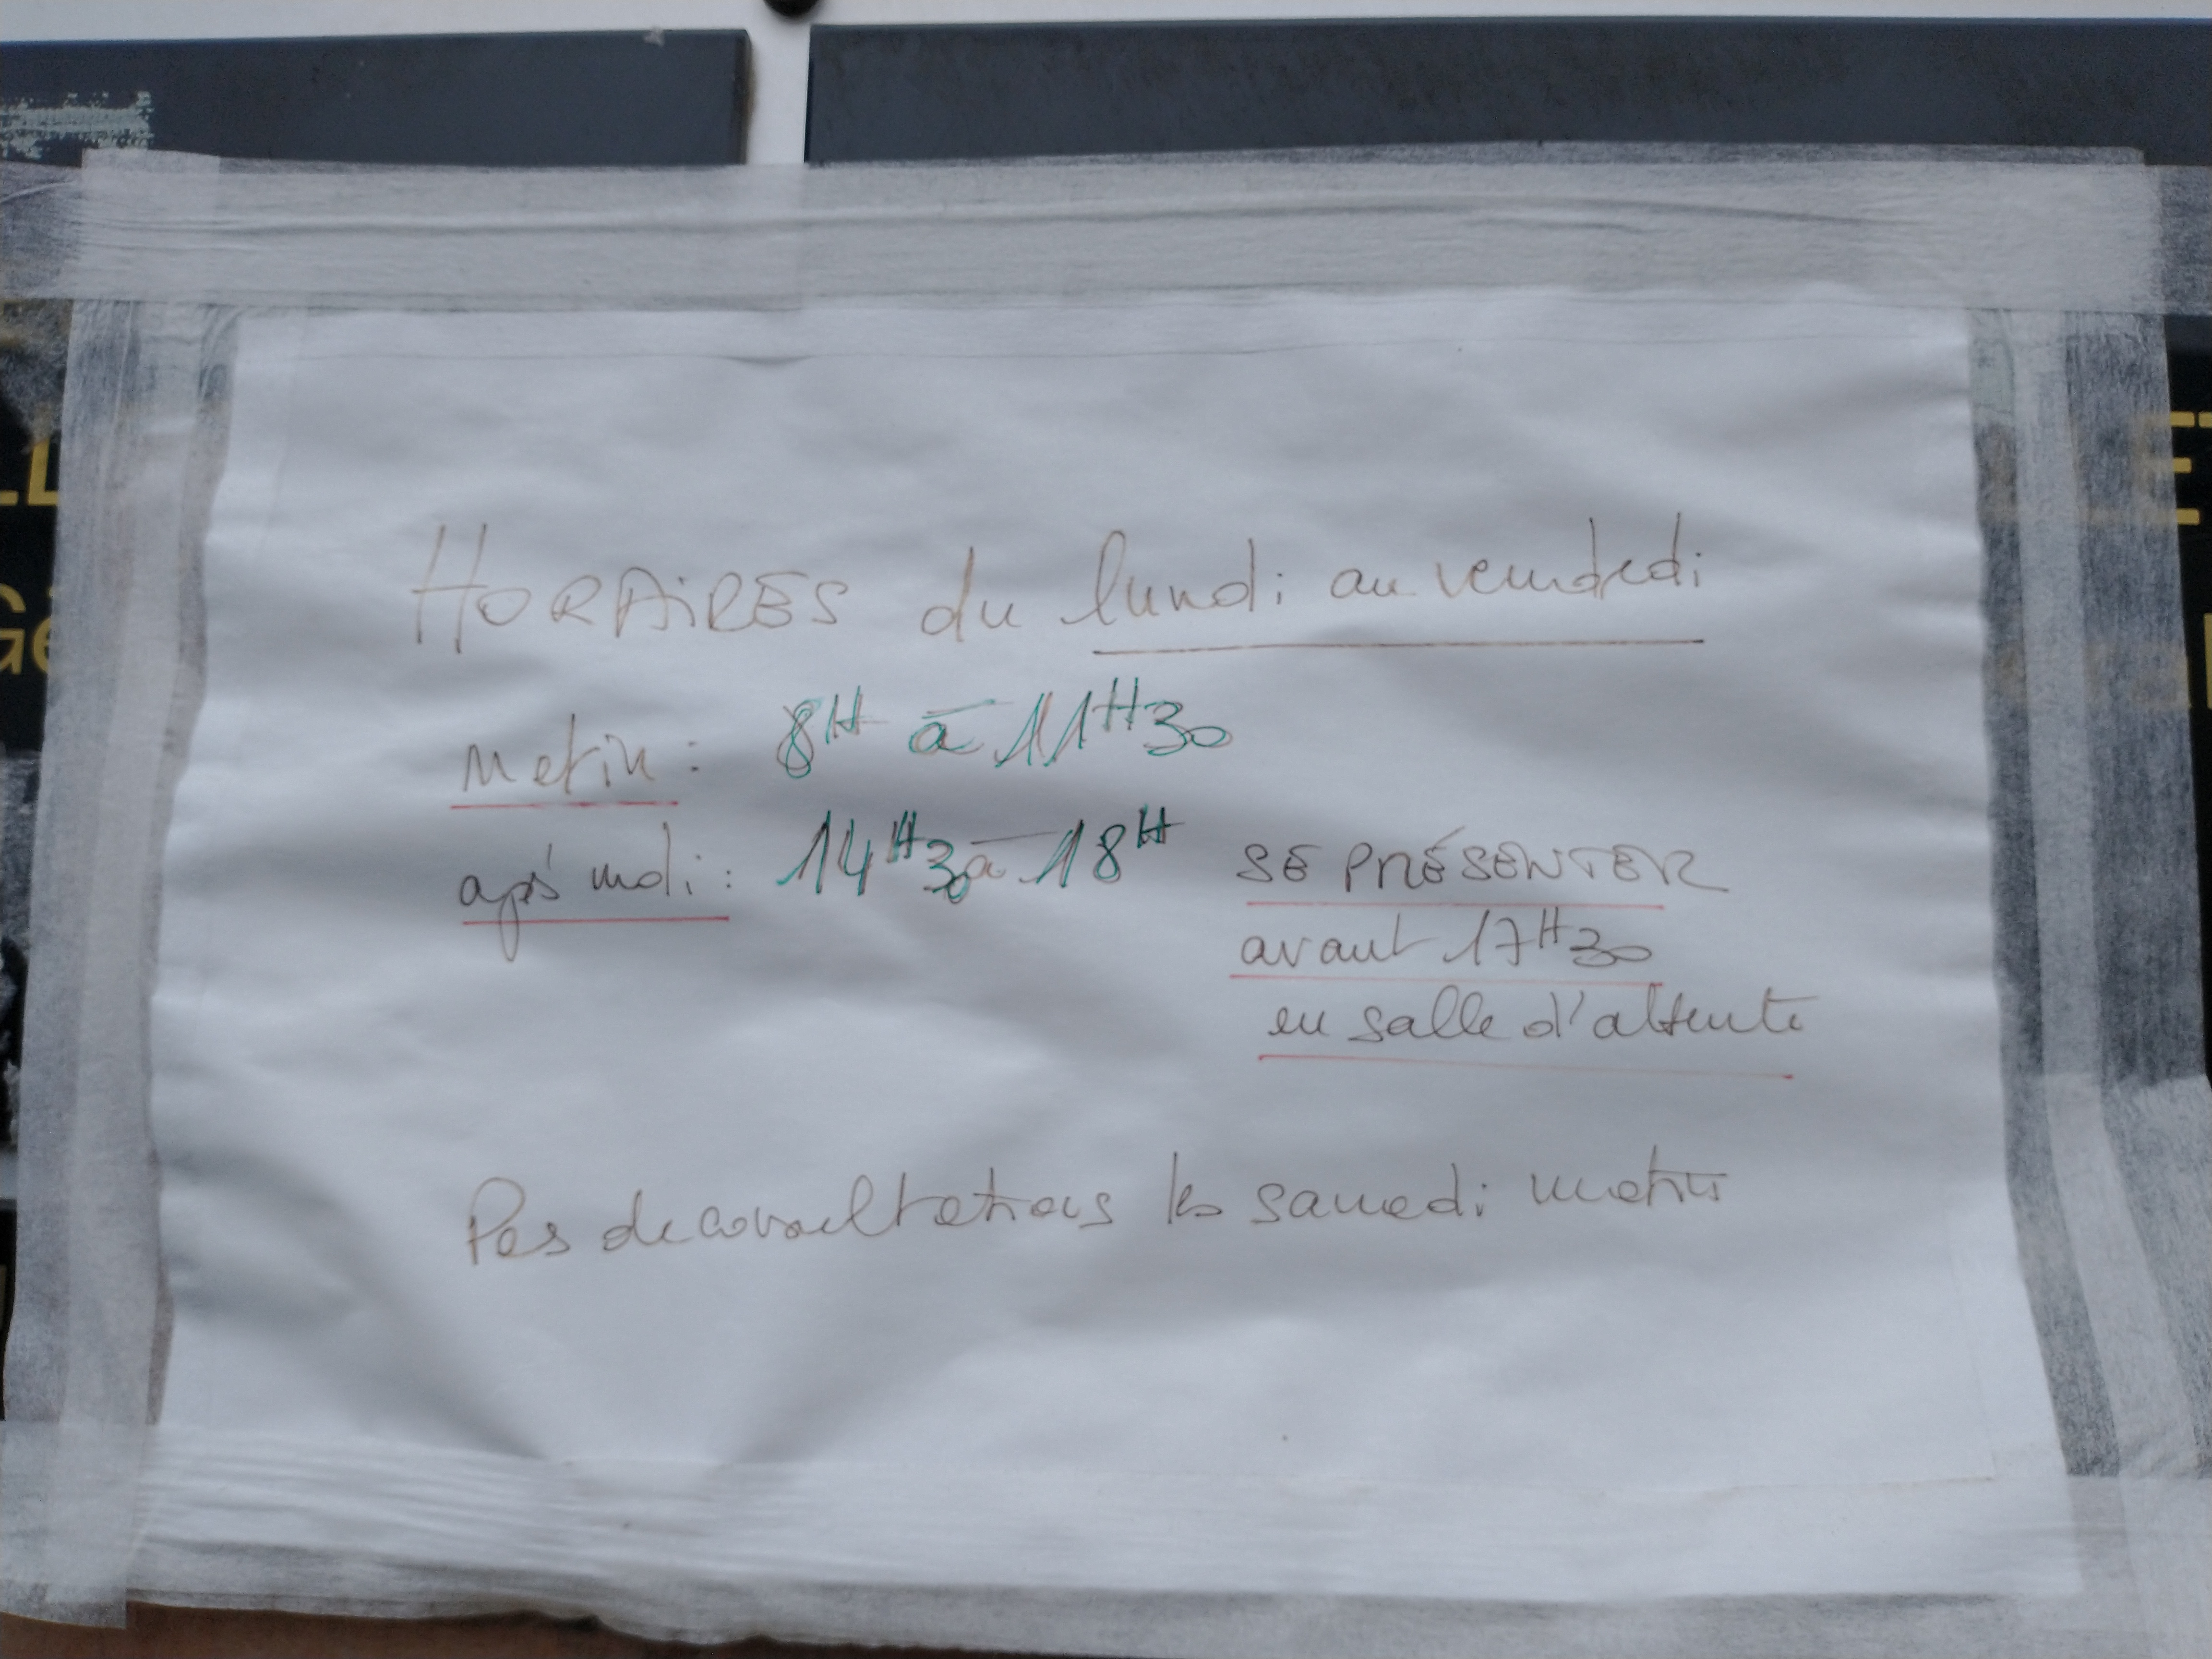 HORAIRES du lundi au vendredi
Matin : 8H à 11H30
après midi : 14H30 à 18H SE PRÉSENTER
avant 17H30
en salle d'attente
Pas de consultations les samedi matin